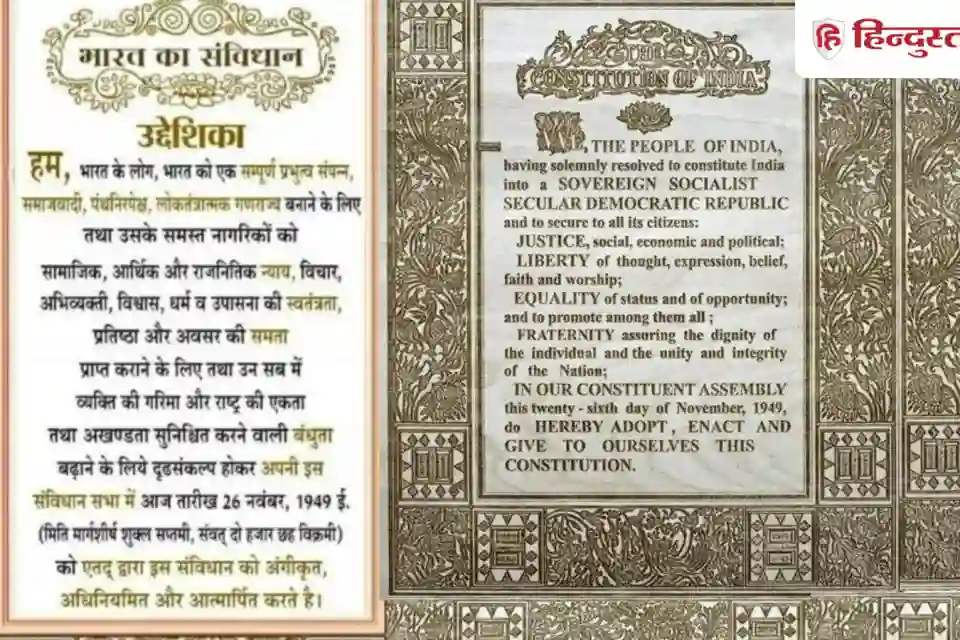 भारत का संविधान
उद्देशिका
हम, भारत के लोग, भारत को एक सम्पूर्ण प्रभुत्व संपन्न,
समाजवादी, पंथनिरपेक्ष, लोकतंत्रात्मक गणराज्य बनाने के लिए
तथा उसके समस्त नागरिकों को
सामाजिक, आर्थिक और राजनितिक न्याय, विचार,
अभिव्यक्ती, विश्वास, धर्म व उपासना की स्वतंत्रता,
प्रतिष्ठा और अवसर की समता
प्राप्त कराने के लिए तथा उन सब में
व्यक्ति की गरिमा और राष्ट्र की एकता
तथा अखण्डता सुनिश्चित करने वाली बंधुता
बढ़ाने के लिये दृढसंकल्प होकर अपनी इस
संविधान सभा में आज तारीख 26 नवंबर, 1949 ई.
(मिति मार्गशीर्ष शुक्ल सप्तमी, संवत् दो हजार छह विक्रमी)
को एतद् द्वारा इस संविधान को अंगीकृत,
अधिनियमित और आत्मार्पित करते है।
THE
CONSTITUTION OF INDIA
WE, THE PEOPLE OF INDIA,
having solemnly resolved to constitute India
into a SOVEREIGN SOCIALIST
SECULAR DEMOCRATIC REPUBLIC
and to secure to all its citizens:
JUSTICE, social, economic and political;
LIBERTY of thought, expression, belief,
faith and worship;
EQUALITY of status and of opportunity;
and to promote among them all ;
FRATERNITY assuring the dignity of
the individual and the unity and integrity
of the Nation;
IN OUR CONSTITUENT ASSEMBLY
this twenty - sixth day of November, 1949,
do HEREBY ADOPT, ENACT AND
GIVE TO OURSELVES THIS
CONSTITUTION.
हि हिन्दुस्त